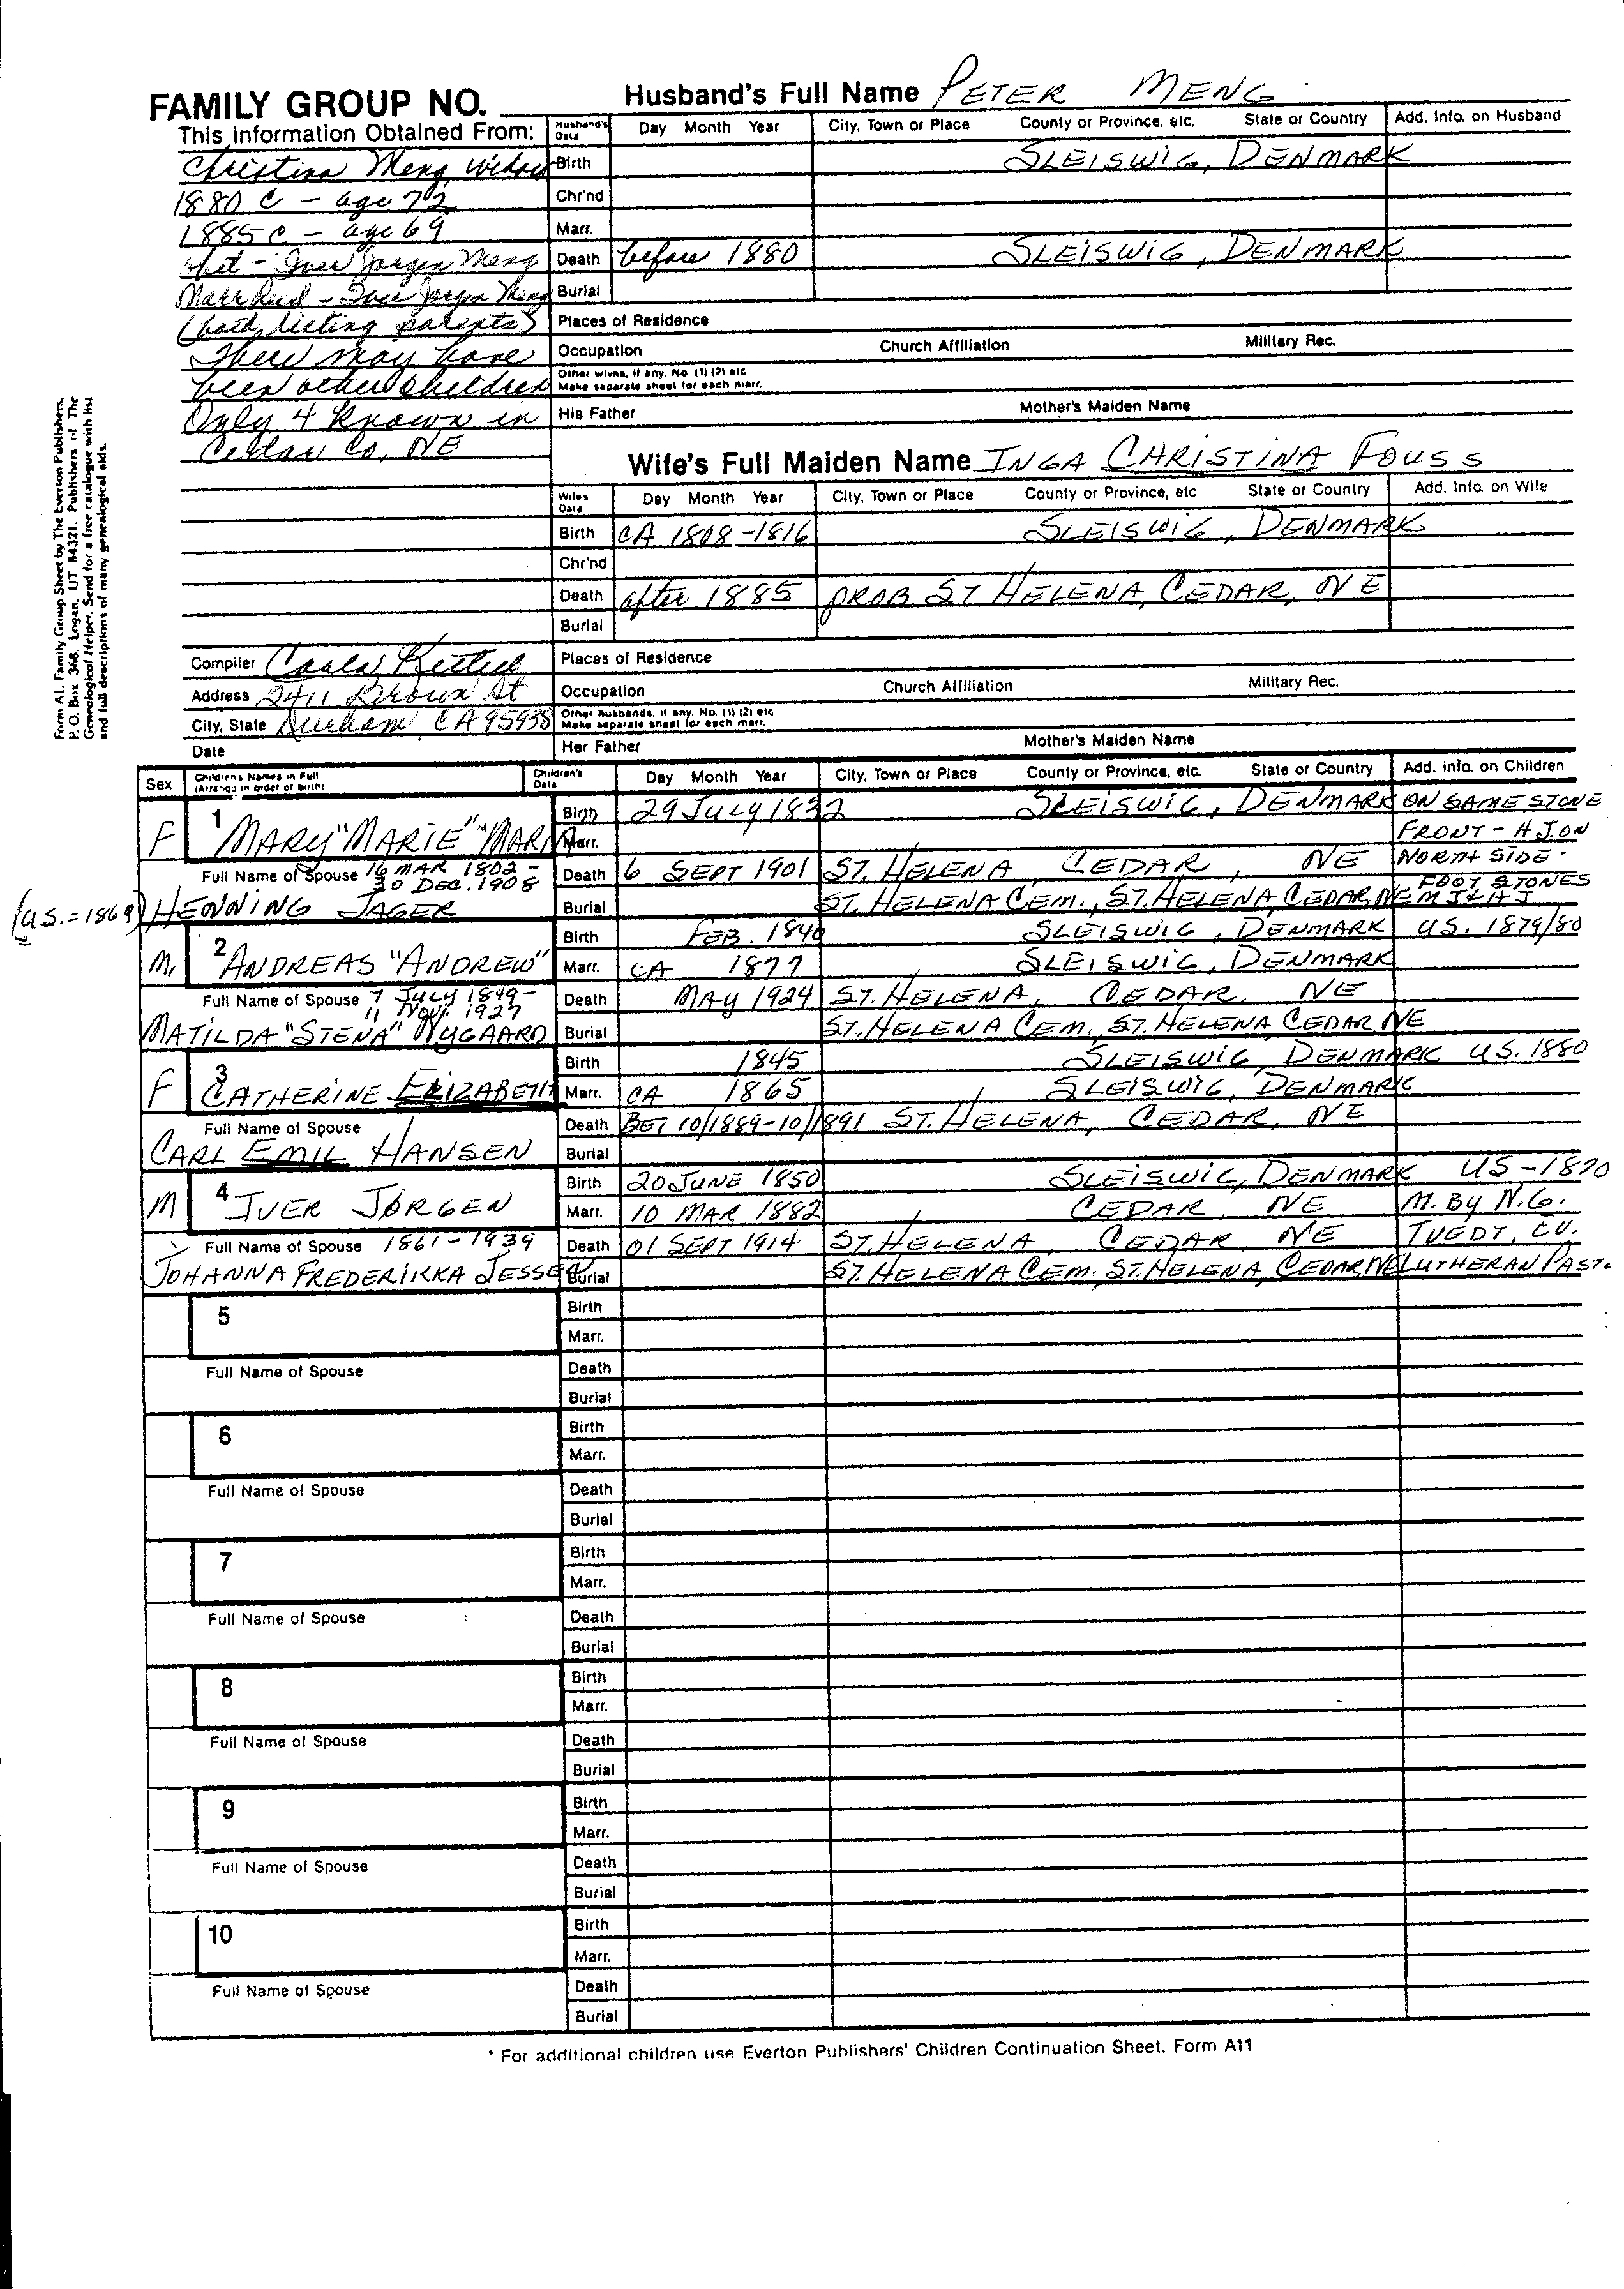 FAMILY GROUP NO.
Husband's Full Name PETER MENG
This information Obtained From:
Husband's Data Day Month Year City, Town or Place County or Province, etc. State or Country Add. Info. on Husband
Christina Meng, widow
Birth SLEISWIG, DENMARK
1880 C - age 72
Chr'nd
1885 c - age 69
Marr.
obit - Iver Jorgen Meng
Death before 1880 SLEISWIG, DENMARK
Marr Recd - Iver Jorgen Meng
Burial
(both listing parents)
Places of Residence
There may have
Occupation Church Affiliation Military Rec.
been other children
Other wives, if any. No. (1) (2) etc.
Make separate sheet for each marr.
Only 4 known in
His Father Mother's Maiden Name
Cedar Co, NE
Wife's Full Maiden Name INGA CHRISTINA FOUSS
Wife's Data Day Month Year City, Town or Place County or Province, etc State or Country Add. Info. on Wife
Birth CA 1808-1816 SLEISWIG, DENMARK
Chr'nd
Death after 1885 PROB. ST HELENA, CEDAR, NE
Burial
Compiler Carla
Places of Residence
Address 2411 Brown St
Occupation Church Affiliation Military Rec.
City, State Durham, CA 95938
Other husbands, if any. No. (1) (2) etc
Make separate sheet for each marr.
Date
Her Father Mother's Maiden Name
Form A1. Family Group Sheet by The Everton Publishers,
P.O. Box 368, Logan, UT 84321. Publishers of The
Genealogical Helper. Send for a free catalogue with list
and full descriptions of many genealogical aids.
Sex Children's Names in Full (Arrange in order of birth) Children's Data Day Month Year City, Town or Place County or Province, etc. State or Country Add. info. on Children
1 Birth 29 JULY 1832 SLEISWIG, DENMARK ON SAME STONE
F MARY "MARIE" "MARIA Marr. FRONT - H J. ON
Full Name of Spouse 16 MAR 1802 - 30 DEC. 1908 Death 6 SEPT 1901 ST. HELENA, CEDAR, NE NORTH SIDE.
FOOT STONES
(U.S. = 1869) HENNING JAGER Burial ST. HELENA CEM., ST. HELENA, CEDAR, NE M J & H J
2 Birth FEB. 1840 SLEISWIG, DENMARK U.S. 1879/80
M. ANDREAS "ANDREW" Marr. CA 1877 SLEISWIG, DENMARK
Full Name of Spouse 7 JULY 1849 - 11 NOV. 1927 Death MAY 1924 ST. HELENA, CEDAR, NE
MATILDA "STENA" NYGAARD Burial ST. HELENA CEM., ST. HELENA CEDAR NE
3 Birth 1845 SLEISWIG, DENMARK U.S. 1880
F CATHERINE ELIZABETH Marr. CA 1865 SLEISWIG, DENMARK
Full Name of Spouse Death BET 10/1889-10/1891 ST. HELENA, CEDAR, NE
CARL EMIL HANSEN Burial
4 Birth 20 JUNE 1850 SLEISWIG, DENMARK US-1870
M IVER JØRGEN Marr. 10 MAR 1882 CEDAR, NE M. By N.G.
Full Name of Spouse 1861-1939 Death 01 SEPT 1914 ST. HELENA, CEDAR, NE TVEDT, EV.
JOHANNA FREDERIKKA JESSEN Burial ST. HELENA CEM. ST. HELENA, CEDAR NE LUTHERAN PAST.
5 Birth
Marr.
Full Name of Spouse Death
Burial
6 Birth
Marr.
Full Name of Spouse Death
Burial
7 Birth
Marr.
Full Name of Spouse Death
Burial
8 Birth
Marr.
Full Name of Spouse Death
Burial
9 Birth
Marr.
Full Name of Spouse Death
Burial
10 Birth
Marr.
Full Name of Spouse Death
Burial
* For additional children use Everton Publishers' Children Continuation Sheet. Form A11